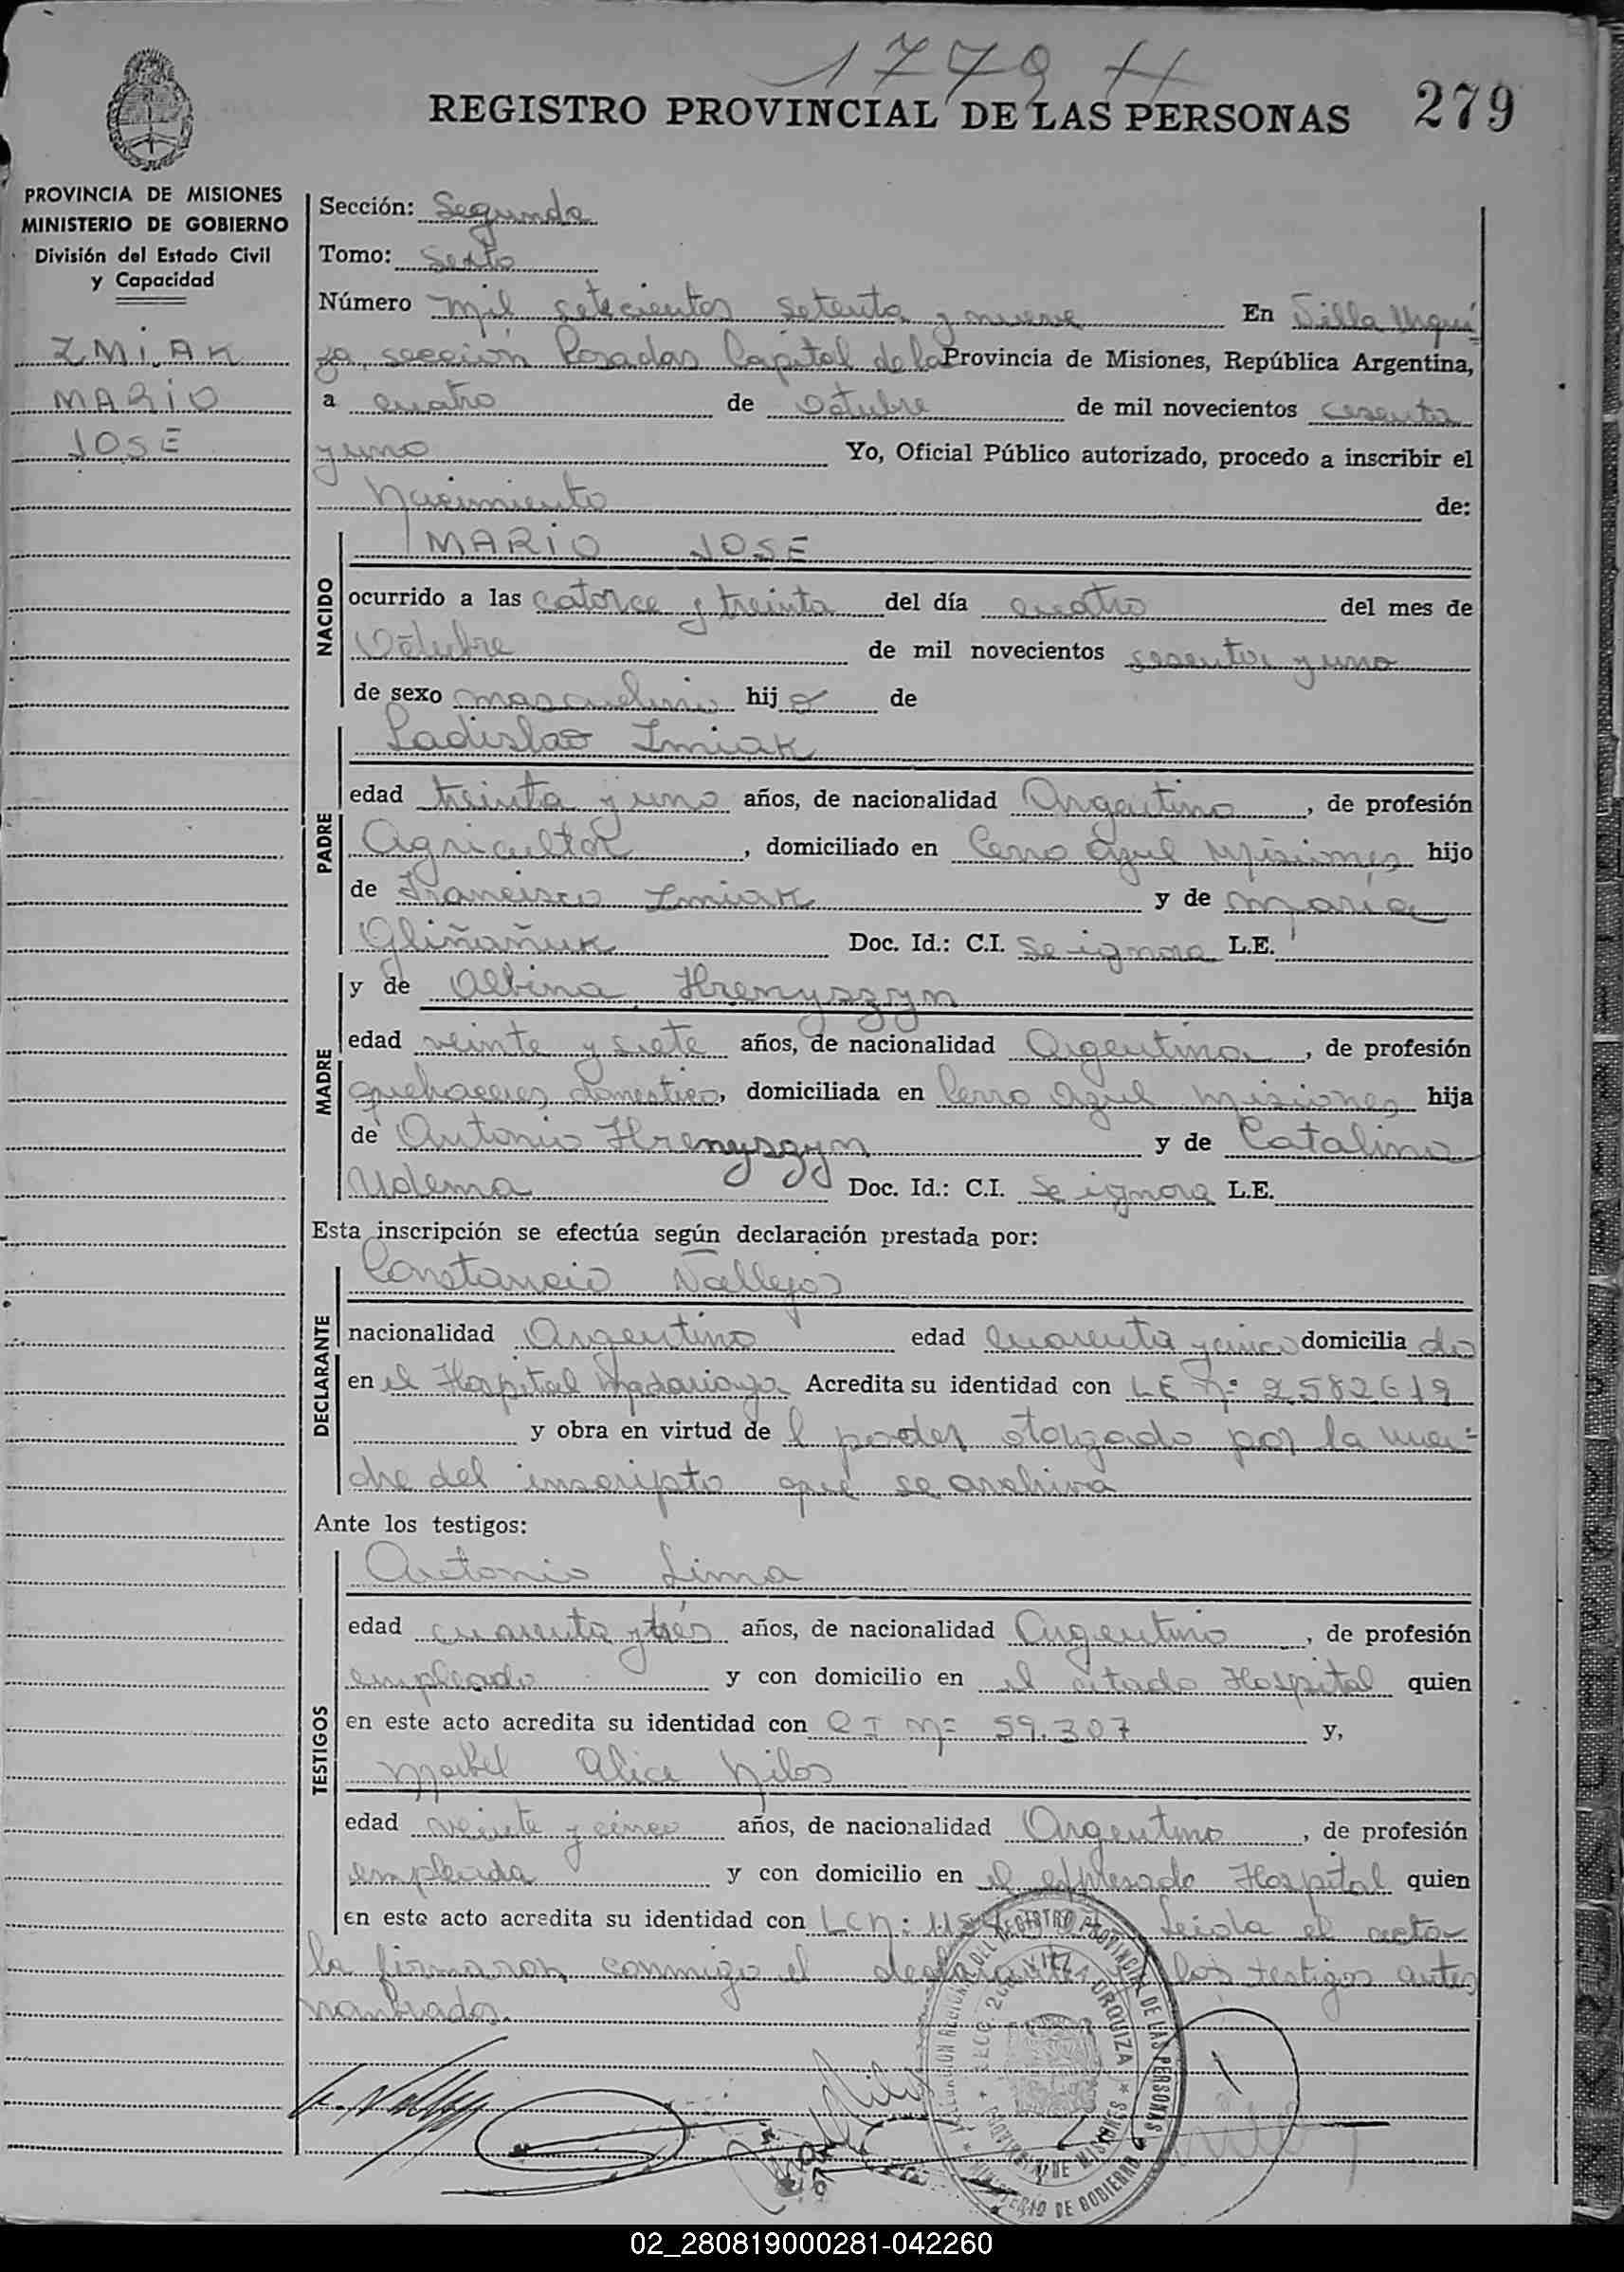 1779 H
REGISTRO PROVINCIAL DE LAS PERSONAS 279
PROVINCIA DE MISIONES
MINISTERIO DE GOBIERNO
División del Estado Civil
y Capacidad
ZMiAK
MARiO
JOSE
Sección: Segunda
Tomo: Sexto
Número mil setecientos setenta y nueve En Villa Urqui
za, sección Posadas Capital de la Provincia de Misiones, República Argentina,
a cuatro de Octubre de mil novecientos cesenta
y uno Yo, Oficial Público autorizado, procedo a inscribir el
Nacimiento de:
NACIDO
MARiO JOSE
ocurrido a las catorce y treinta del día cuatro del mes de
Octubre de mil novecientos sesenta y uno
de sexo masculino hijo de
PADRE
Ladislao Zmiak
edad treinta y uno años, de nacionalidad Argentino, de profesión
Agricultor, domiciliado en Cerro Azul Misiones hijo
de Francisco Zmiak y de Maria
Gliñañuk Doc. Id.: C.I. se ignora L.E.
MADRE
y de Albina Hrenyszyn
edad veinte y siete años, de nacionalidad Argentina, de profesión
quehaceres domestico, domiciliada en Cerro Azul Misiones hija
de Antonio Hrenyszyn y de Catalina
Udema Doc. Id.: C.I. Se ignora L.E.
Esta inscripción se efectúa según declaración prestada por:
DECLARANTE
Constancio Vallejos
nacionalidad Argentino edad cuarenta y cinco domiciliado
en el Hospital Madariaga Acredita su identidad con LE Nº 2582619
y obra en virtud de l poder otorgado por la ma-
dre del inscripto que se archiva
Ante los testigos:
TESTIGOS
Antonio Lima
edad cuarenta y tres años, de nacionalidad Argentino, de profesión
empleado y con domicilio en el citado Hospital quien
en este acto acredita su identidad con C I Nº 59.307 y,
Mabel Alice Nilos
edad veinte y cinco años, de nacionalidad Argentino, de profesión
empleada y con domicilio en el expresado Hospital quien
en este acto acredita su identidad con LC N: Leida el acta
la firmaron conmigo el declarante los testigos antes
nombrados.
REGISTRO PROVINCIAL DE LAS PERSONAS
VILLA URQUIZA
PROVINCIA DE MISIONES
MINISTERIO DE GOBIERNO
02_280819000281-042260